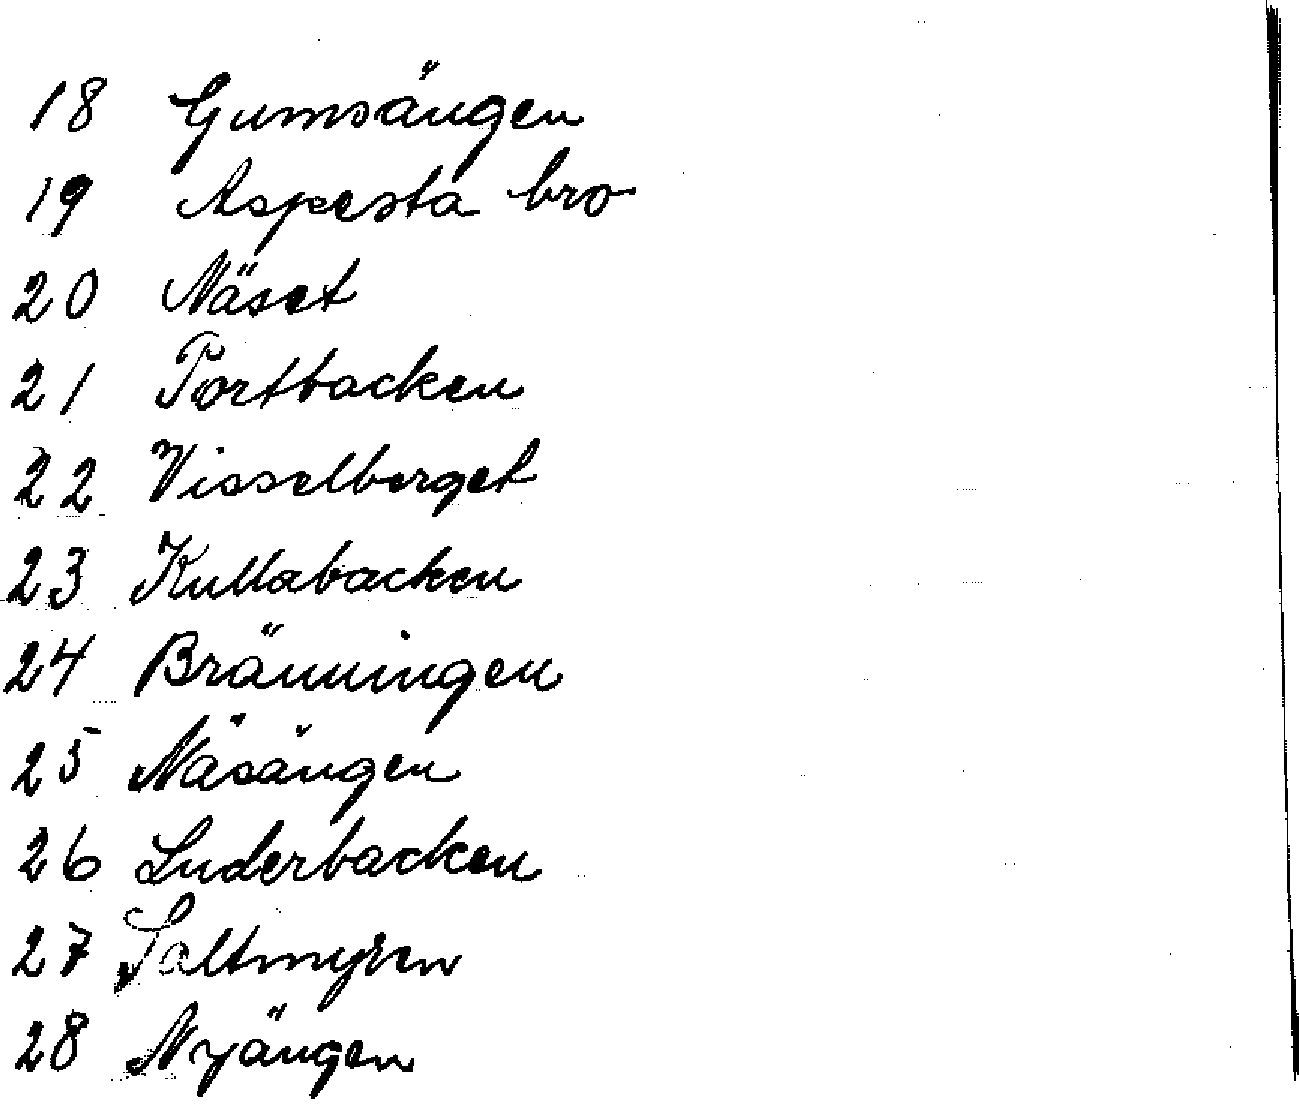 18 Gumsängen
19 Aspesta bro
20 Näset
21 Portbacken
22 Visselberget
23 Kullabacken
24 Bränningen
25 Näsängen
26 Luderbacken
27 Saltmyren
28 Nyängen